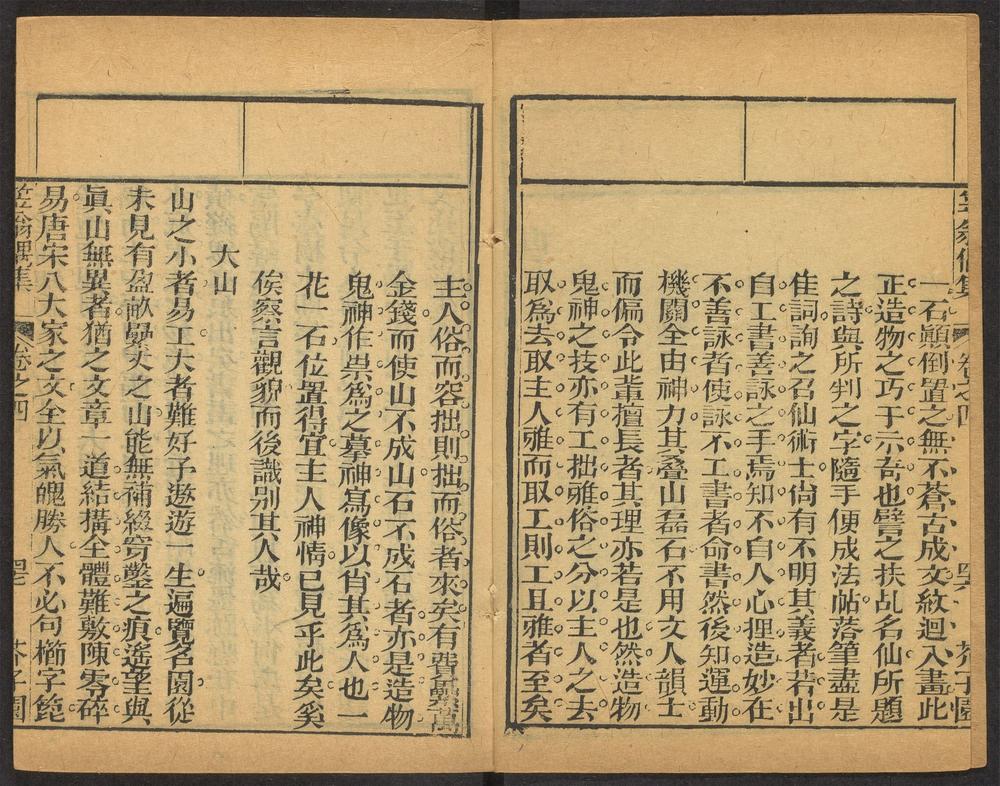 一石顚倒置之無不蒼古成文紋迴入畫此
正造物之巧于示奇也譬之扶乩名仙所題
之詩與所判之字隨手便成法帖落筆盡是
佳詞詢之召仙術士尙有不明其義者若出
自工書善詠之手焉知不自人心捏造妙在
不善詠者使詠不工書者命書然後知運動
機關全由神力其叠山磊石不用文人韻士
而偏令此輩擅長者其理亦若是也然造物
鬼神之技亦有工拙雅俗之分以主人之去
取爲去取主人雅而取工則工且雅者至矣
主人俗而容拙則拙而俗者來矣有費累萬
金錢而使山不成山石不成石者亦是造物
鬼神作祟爲之摹神寫像以肖其爲人也一
花一石位置得宜主人神情已見乎此矣奚
俟察言觀貌而後識別其人哉
大山
山之小者易工大者難好予遨遊一生遍覽名園從
未見有盈畝纍丈之山能無補綴穿鑿之痕遙望與
眞山無異者猶之文章一道結搆全體難敷陳零碎
易唐宋八大家之文全以氣魄勝人不必句櫛字篦
笠翁偶集 卷之四 芥子園